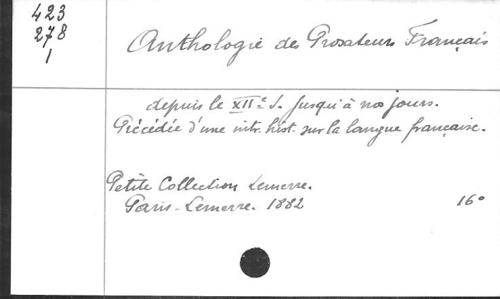 423
278
1
Anthologie des Prosateurs Français
depuis le XIIe S. jusqu'à nos jours.
Précédée d'une intr. hist. sur la langue française.
Petite Collection Lemerre.
Paris - Lemerre. 1882 16°